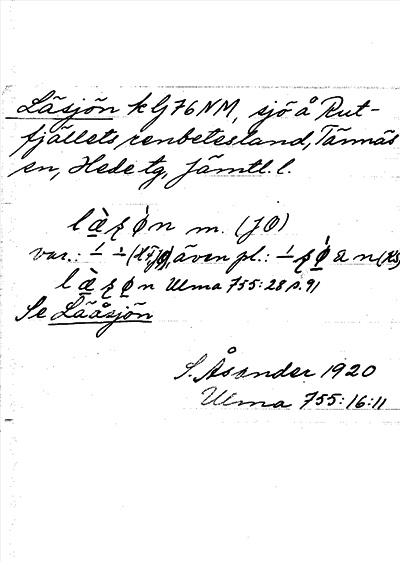 Läsjön klg76NM, sjö å Rut-
fjällets renbetesland, Tännäs
sn, Hede tg, Jämtl. l.
m. (JO)
var.: även pl.:
Ulma 755:28 s. 91
Se Lååsjön
S. Åsander 1920
Ulma 755:16:11